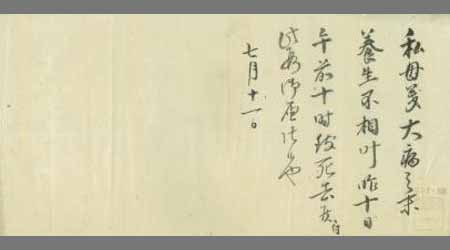 私母美大病之末
養生不相叶昨十日
午前十時致死去候付
此段御届仕候也
七月十一日